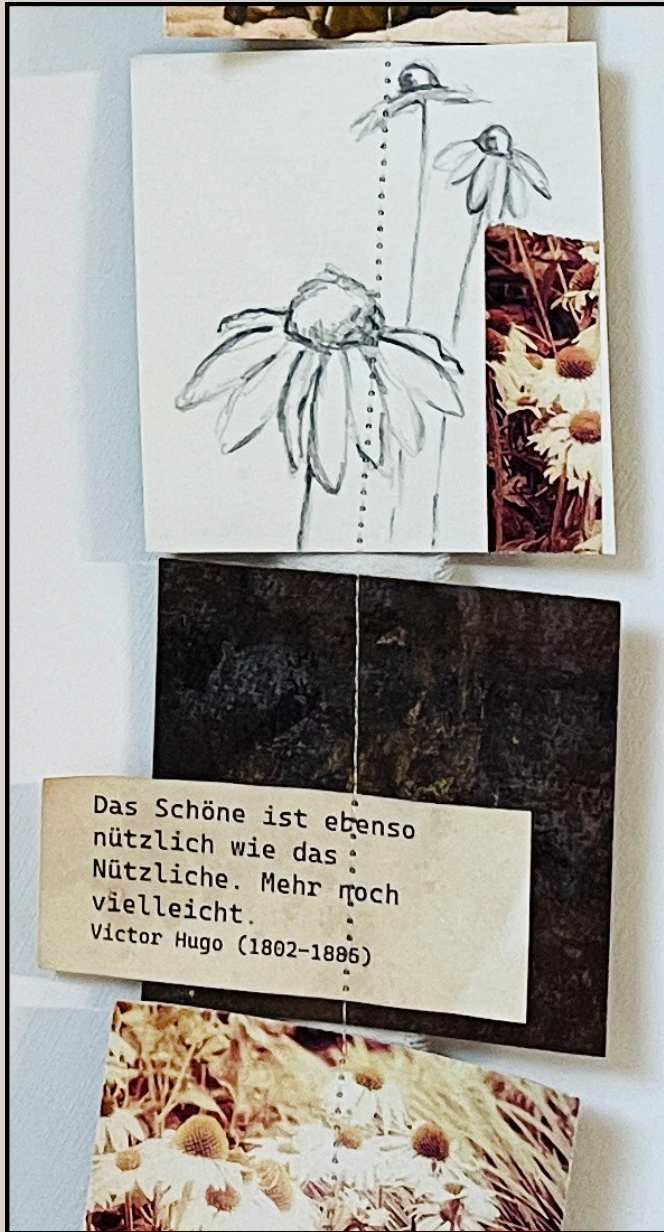 Das Schöne ist ebenso
nützlich wie das
Nützliche. Mehr noch
vielleicht.
Victor Hugo (1802–1886)